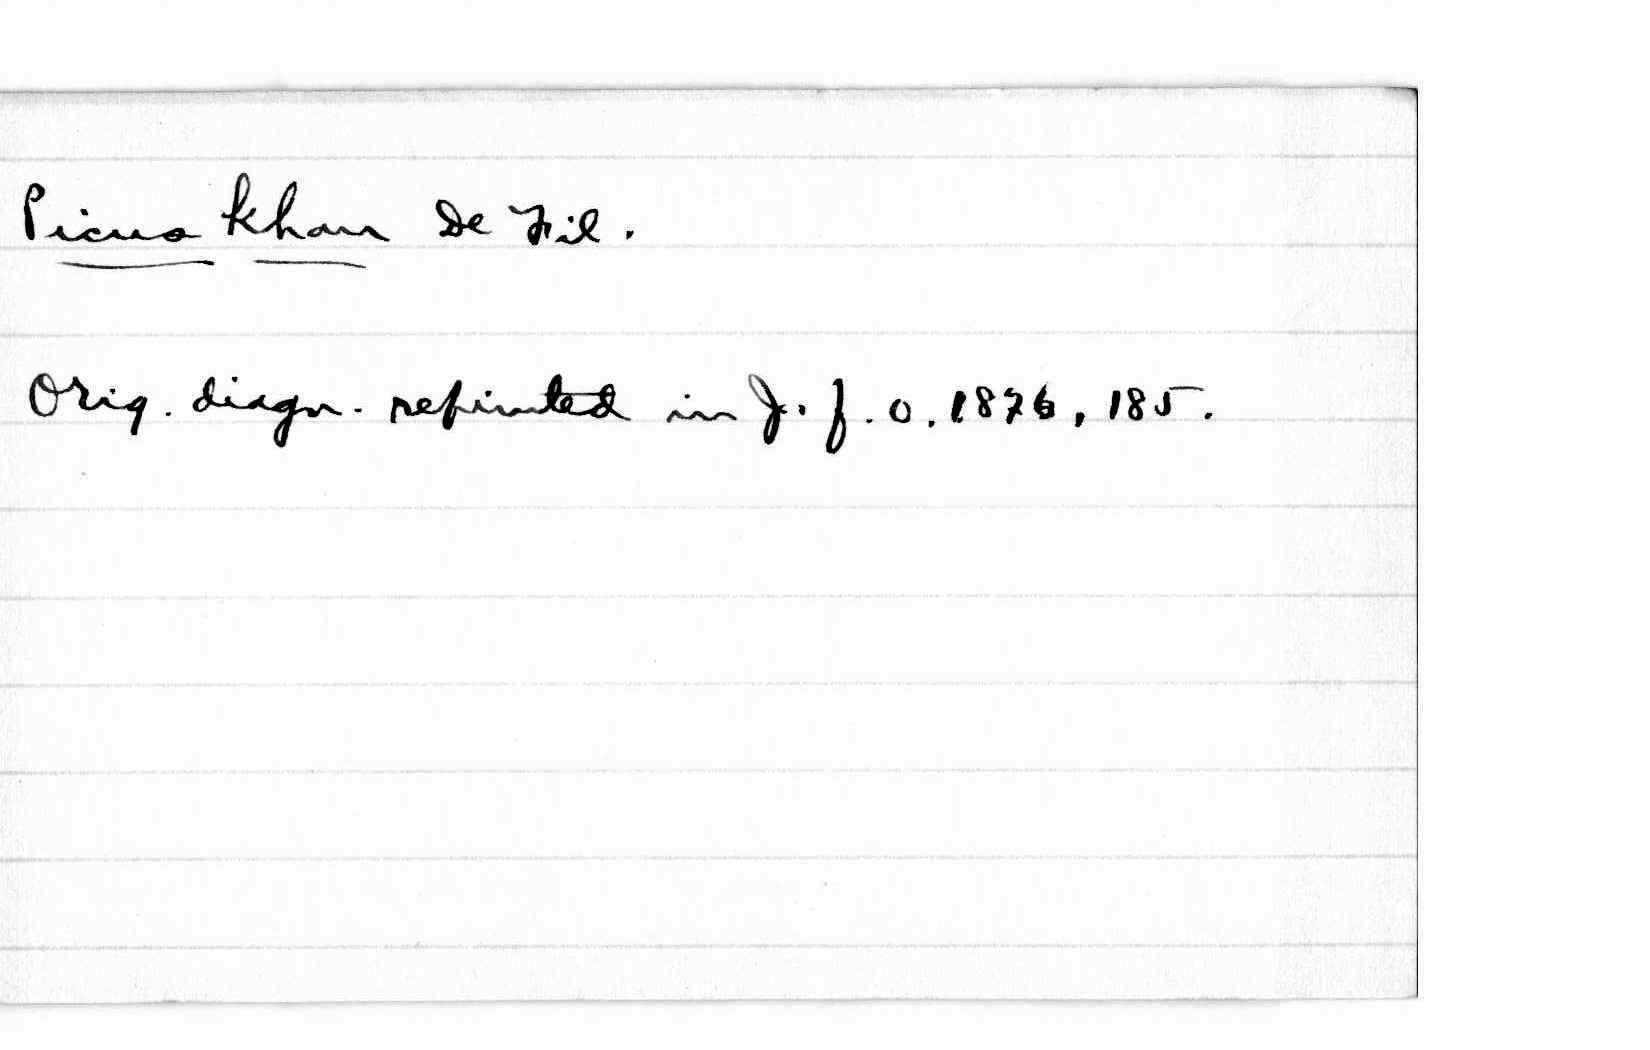 Picus khan De Fil.
Orig. diagn. reprinted in J. f. o. 1876, 185.